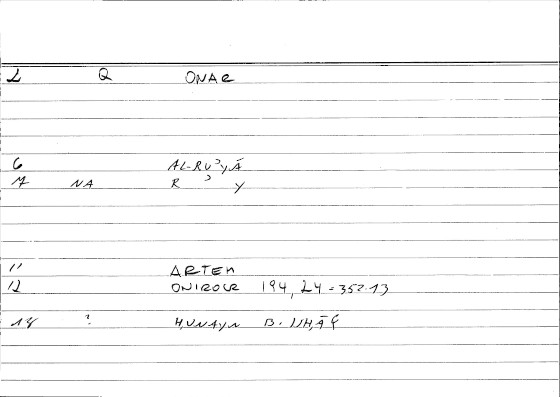 2 Q ONAR
6 AL-RUʾYĀ
7 NA R ʾ Y
11 ARTEM
12 ONIROCR 194, 24 = 352.13
18 ? ḤUNAYN B. ISḤĀQ